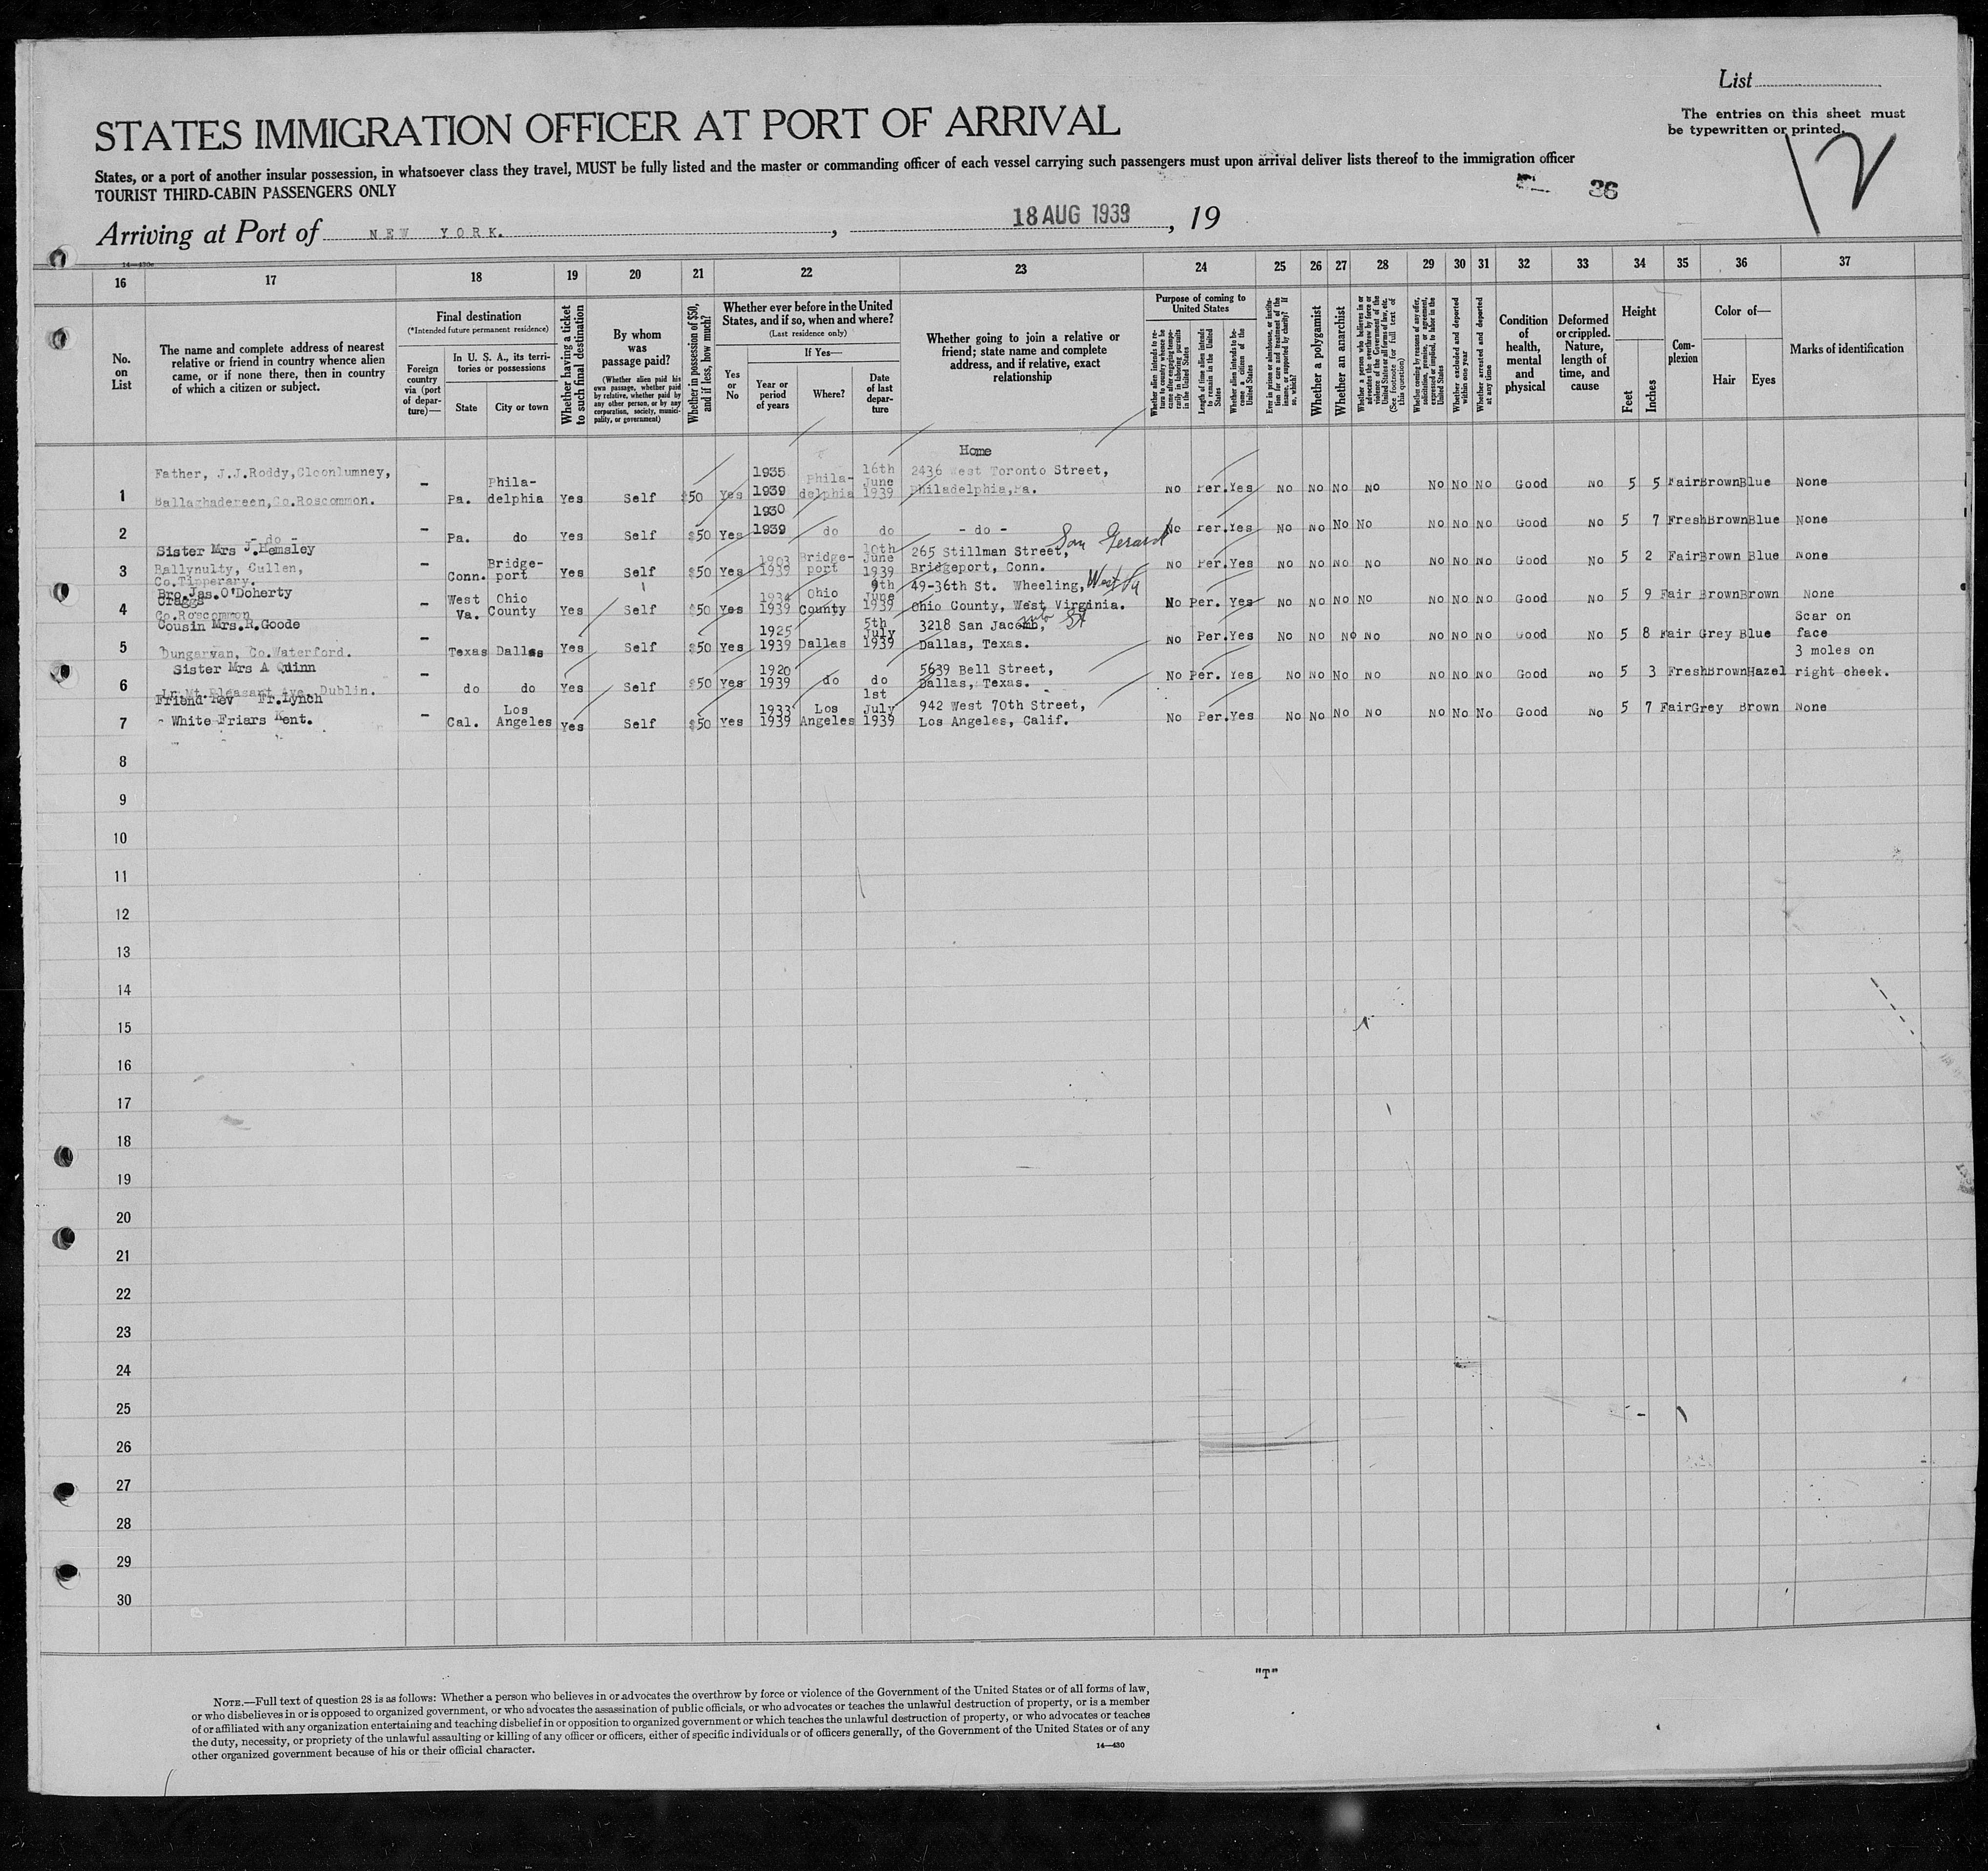 List
The entries on this sheet must
be typewritten or printed.
12
STATES IMMIGRATION OFFICER AT PORT OF ARRIVAL
States, or a port of another insular possession, in whatsoever class they travel, MUST be fully listed and the master or commanding officer of each vessel carrying such passengers must upon arrival deliver lists thereof to the immigration officer
TOURIST THIRD-CABIN PASSENGERS ONLY
36
Arriving at Port of NEW YORK. , 18 AUG 1939 , 19
16 17 18 19 20 21 22 23 24 25 26 27 28 29 30 31 32 33 34 35 36 37
No. on List
The name and complete address of nearest
relative or friend in country whence alien
came, or if none there, then in country
of which a citizen or subject.
Final destination
(*Intended future permanent residence)
Foreign country via (port of departure)—
In U. S. A., its territories or possessions
State City or town
Whether having a ticket to such final destination
By whom was passage paid?
(Whether alien paid his own passage, whether paid by relative, whether paid by any other person, or by any corporation, society, municipality, or government)
Whether in possession of $50, and if less, how much?
Whether ever before in the United
States, and if so, when and where?
(Last residence only)
Yes or No
If Yes—
Year or period of years
Where?
Date of last departure
Whether going to join a relative or
friend; state name and complete
address, and if relative, exact
relationship
Purpose of coming to
United States
Whether alien intends to return to country whence he came after engaging temporarily in laboring pursuits in the United States
Length of time alien intends to remain in the United States
Whether alien intends to become a citizen of the United States
Ever in prison or almshouse, or institution for care and treatment of the insane, or supported by charity? If so, which?
Whether a polygamist
Whether an anarchist
Whether a person who believes in or advocates the overthrow by force or violence of the Government of the United States or all forms of law, etc. (See footnote for full text of this question)
Whether coming by reasons of any offer, solicitation, promise, or agreement, expressed or implied, to labor in the United States
Whether excluded and deported within one year
Whether arrested and deported at any time
Condition of health, mental and physical
Deformed or crippled. Nature, length of time, and cause
Height
Feet Inches
Complexion
Color of—
Hair Eyes
Marks of identification
Home
1 Father, J.J.Roddy,Cloonlumney, Ballaghadereen,Co.Roscommon. - Pa. Phila-delphia Yes Self $50 Yes 1935 1939 Phila-delphia 16th June 1939 2436 West Toronto Street, Philadelphia,Pa. No Per. Yes No No No No No No No Good No 5 5 Fair Brown Blue None
2 - do - - Pa. do Yes Self $50 Yes 1930 1939 do do - do - No Per. Yes No No No No No No No Good No 5 7 Fresh Brown Blue None
3 Sister Mrs J.Hemsley Ballynulty, Cullen, Co.Tipperary. - Conn. Bridge-port Yes Self $50 Yes 1939 Bridge-port 10th June 1939 265 Stillman Street, Bridgeport, Conn. No Per. Yes No No No No No No No Good No 5 2 Fair Brown Blue None
4 Bro.Jas.O'Doherty Craggs Co.Roscommon - West Va. Ohio County Yes Self $50 Yes 1934 1939 Ohio County 9th June 1939 49-36th St. Wheeling, West Ohio County, West Virginia. No Per. Yes No No No No No No No Good No 5 9 Fair Brown Brown None
5 Cousin Mrs.R.Goode Dungarvan, Co.Waterford. - Texas Dallas Yes Self $50 Yes 1925 1939 Dallas 5th July 1939 3218 San Jacomb, St Dallas, Texas. No Per. Yes No No No No No No No Good No 5 8 Fair Grey Blue Scar on face
6 Sister Mrs A Quinn Mt.Pleasant Ave. Dublin. do do Yes Self $50 Yes 1920 1939 do do 5639 Bell Street, Dallas, Texas. No Per. Yes No No No No No No No Good No 5 3 Fresh Brown Hazel 3 moles on right cheek.
7 Friend Rev Fr.Lynch White Friars Kent. - Cal. Los Angeles Yes Self $50 Yes 1933 1939 Los Angeles 1st July 1939 942 West 70th Street, Los Angeles, Calif. No Per. Yes No No No No No No No Good No 5 7 Fair Grey Brown None
8
9
10
11
12
13
14
15
16
17
18
19
20
21
22
23
24
25
26
27
28
29
30
"T"
NOTE.—Full text of question 28 is as follows: Whether a person who believes in or advocates the overthrow by force or violence of the Government of the United States or of all forms of law,
or who disbelieves in or is opposed to organized government, or who advocates the assassination of public officials, or who advocates or teaches the unlawful destruction of property, or is a member
of or affiliated with any organization entertaining and teaching disbelief in or opposition to organized government or which teaches the unlawful destruction of property, or who advocates or teaches
the duty, necessity, or propriety of the unlawful assaulting or killing of any officer or officers, either of specific individuals or of officers generally, of the Government of the United States or of any
other organized government because of his or their official character.
14—430